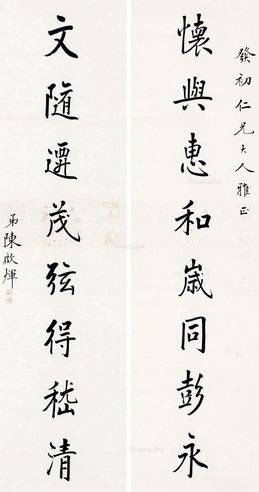 發初仁兄大人雅正
懷與惠和歲同彭永
文隨遷茂弦得嵇清
弟陳啟煇